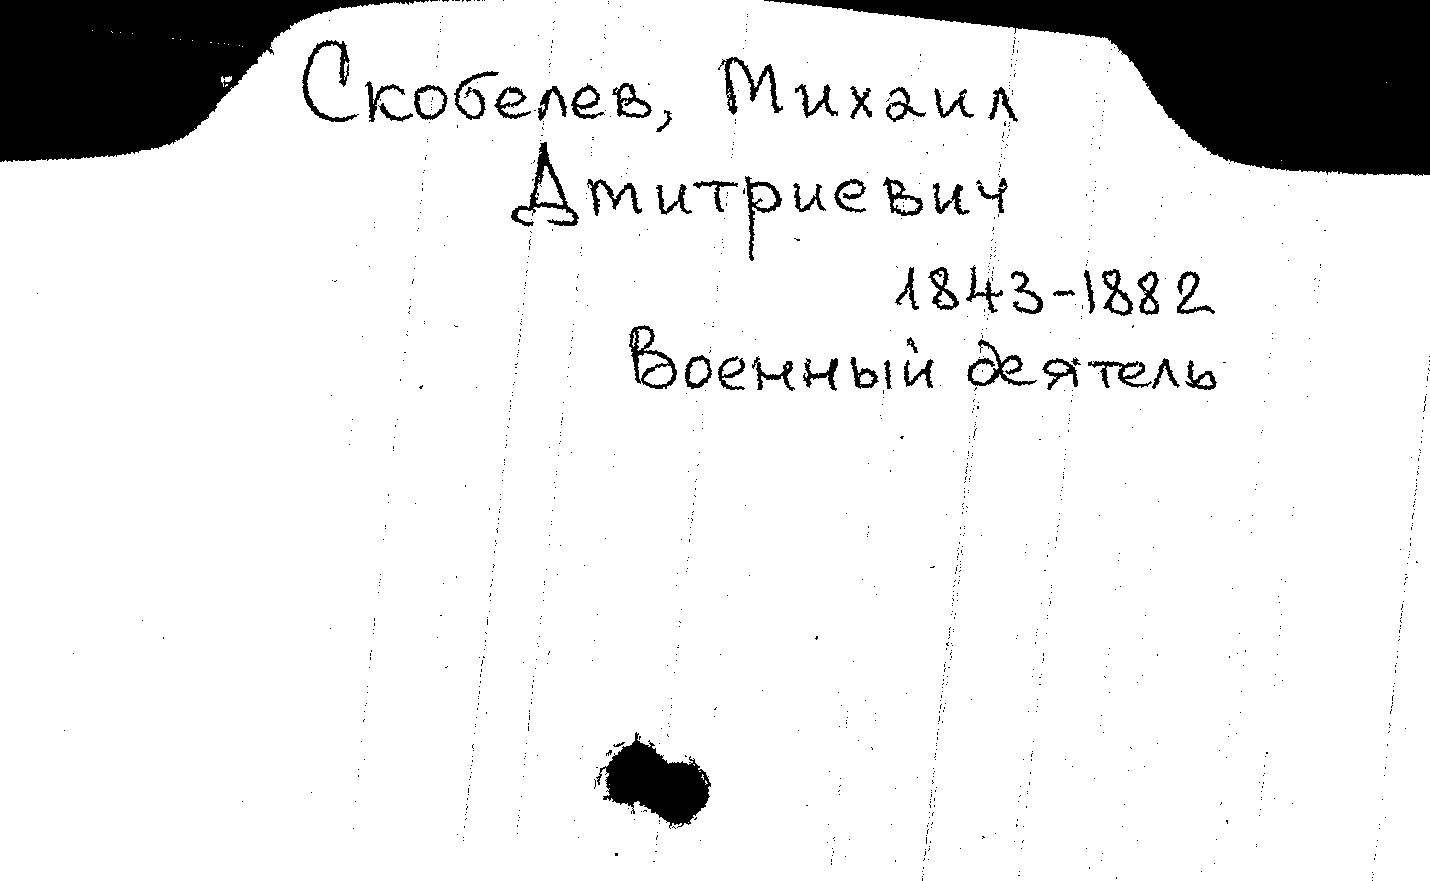 Скобелев, Михаил
Дмитриевич
1843-1882
Военный деятель